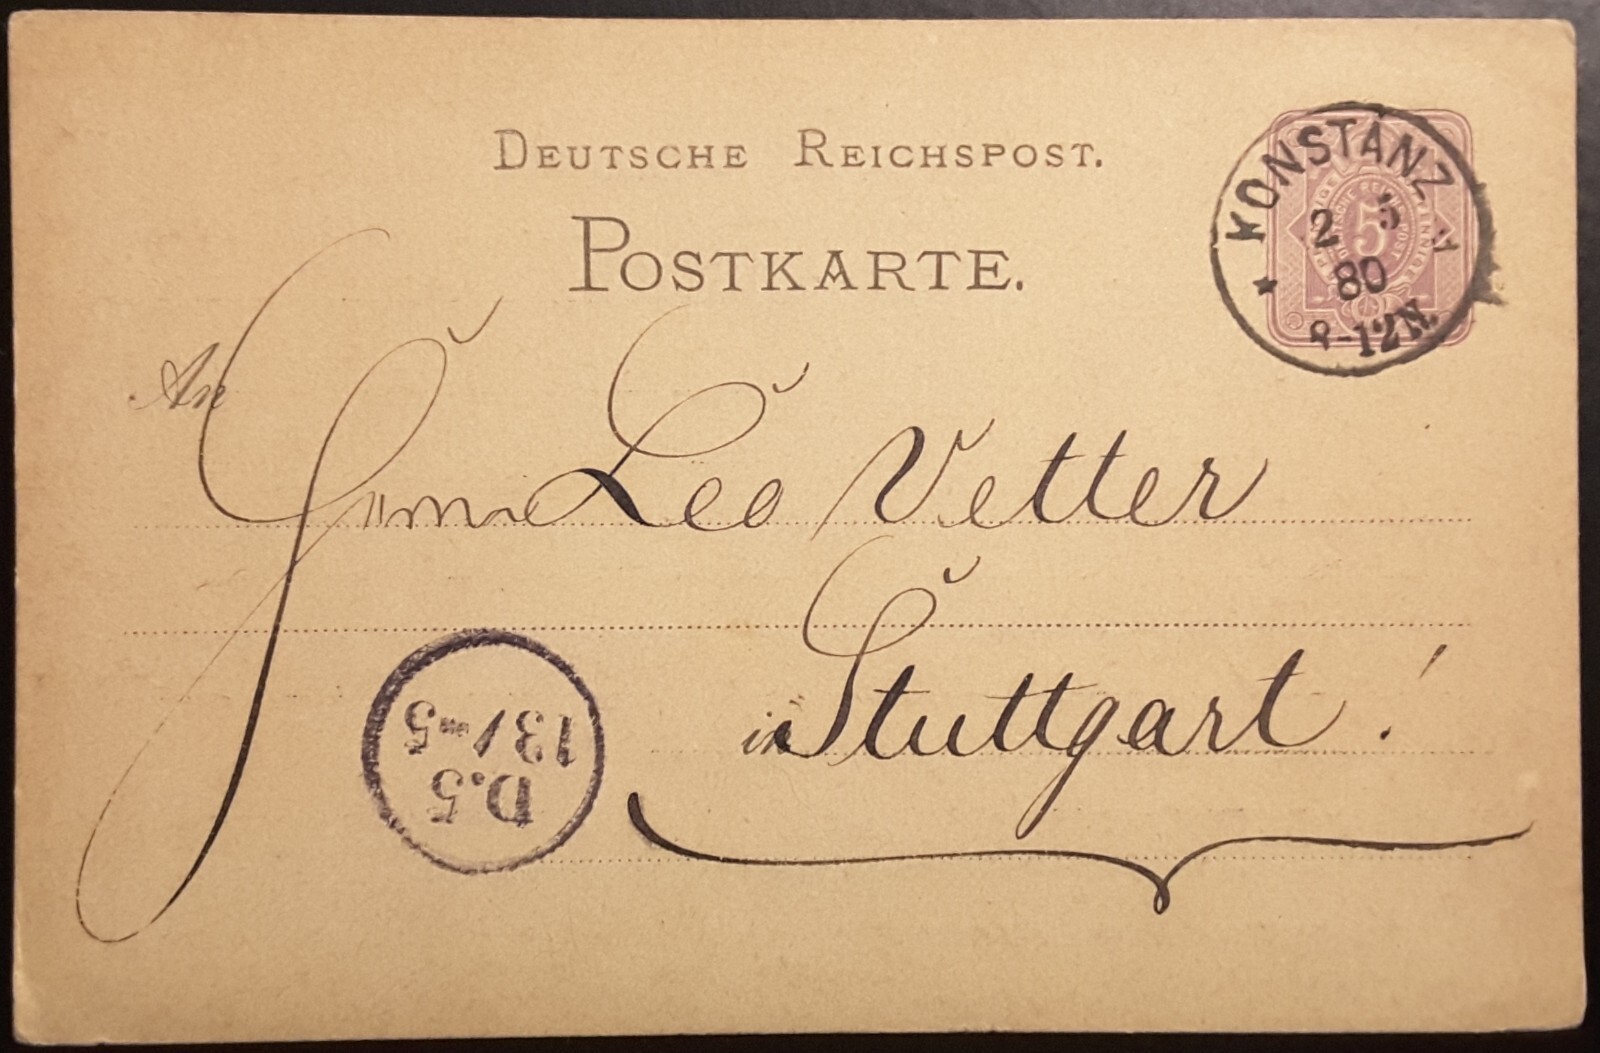 DEUTSCHE REICHSPOST.
POSTKARTE.
KONSTANZ
2 5
80
8-12N.
5
An
Leo Vetter
in Stuttgart!
D.5
13/-5